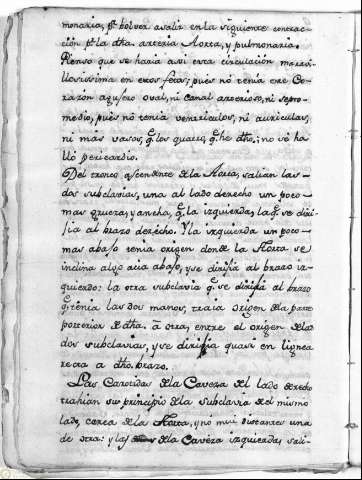 monaria, pᵃ bolver a salir en la siguiente contrac-
ción pʳ la dha. arteria Aorta, y pulmonaria.
Pienso que se haria asi esta circulación maravi-
llosissima en estos fetos; pues nó tenia este Co-
razón agujero oval, ni canal arterioso, ni sepro-
medio, pues nó tenia ventriculos, ni auriculas,
ni mas vasos, q̃ los quatro, q̃ he dho, ni sé ha-
lló pericardio.
Del tronco ascendente de la Aorta, salian las
dos subclavias, una al lado derecho un poco
mas gruesa, y ancha, q̃ la izquierda, la q̃ se diri-
jia al brazo derecho. Y la izquierda un poco
mas abajo tenia origen donde la Aorta se
inclina algo acia abajo, y se dirijia al brazo iz-
quierdo: la otra subclavia q̃ se dirijia al brazo
q̃ tenia las dos manos, traia origen de la parte
posterior de dha. aorta, entre el origen de las
dos subclavias, y se dirijia quasi en lignea
recta a dho. brazo.
Las Carotidas de la Caveza del lado derecho
trahian su principio de la subclavia del mismo
lado, cerca de la Aorta, y nó mui distantes una
de otra: y las de la Caveza izquierda, sali-